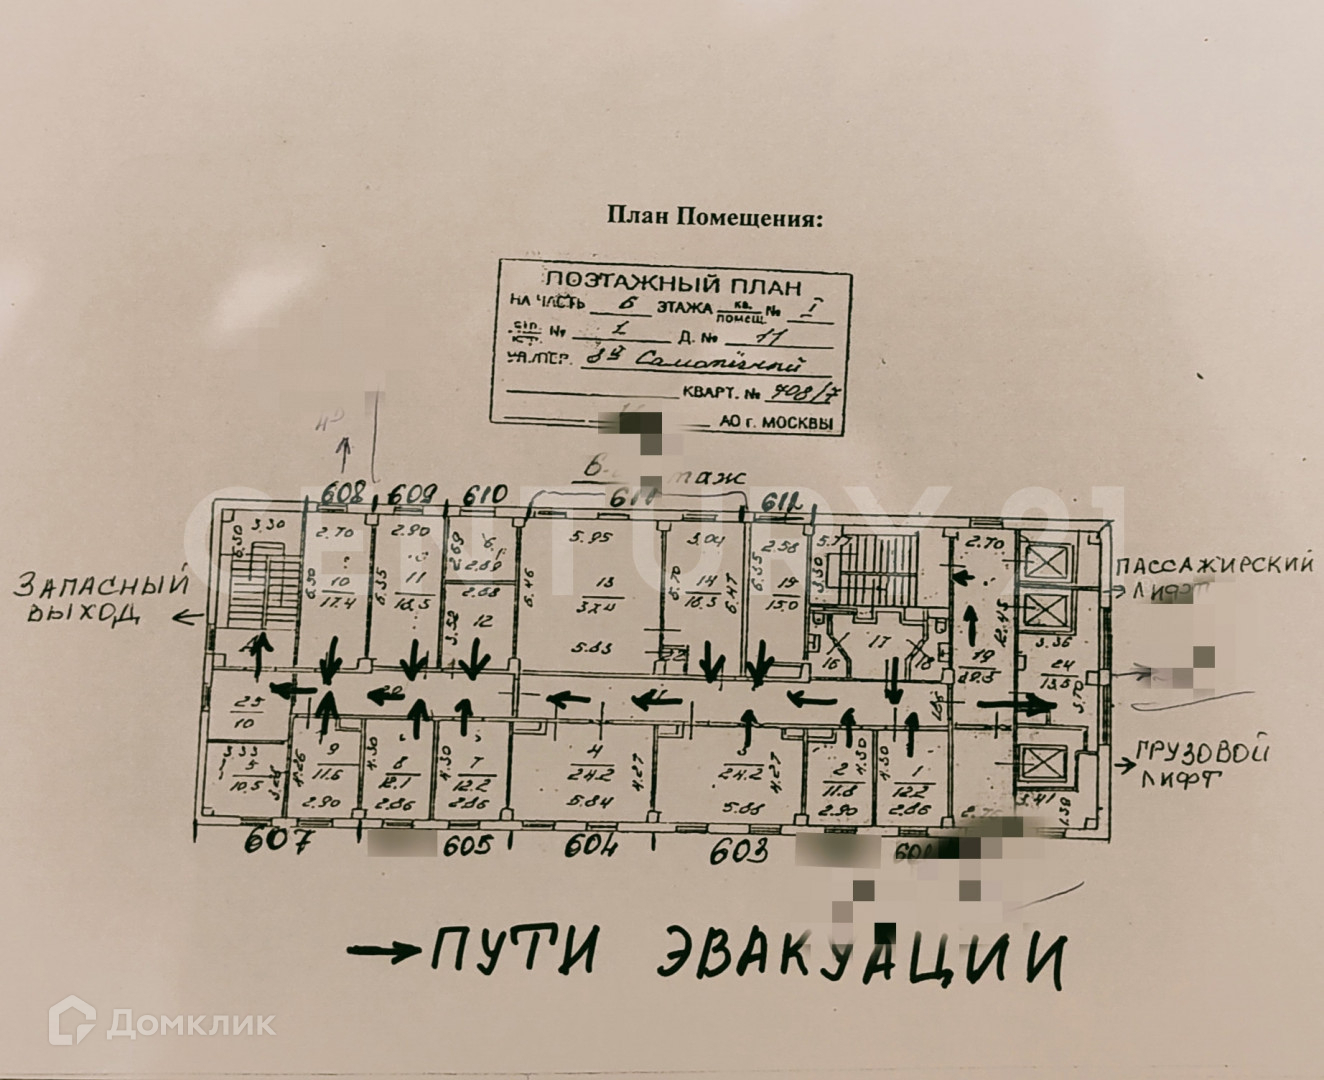 План Помещения:
ПОЭТАЖНЫЙ ПЛАН
НА ЧАСТЬ 6 ЭТАЖА кв. помещ. № I
стр. № 1 Д. № 11
УЛ./ПЕР. 8й Самотёчный
КВАРТ. № 908/7
АО г. МОСКВЫ
608 609 610 611 612
3.30 2.70 2.90 6 5.95 3.04 2.58 5.77 2.70
6.50 6.50 6.55 2.69 2.69 6.46 6.70 6.47 6.55 3.50 12.45
10 11 2.68 13 14 19
17.4 18.5 12 37.4 18.5 15.0
3.52 5.83 16 17 18 19 3.36
24
13.5
3.70
ПАССАЖИРСКИЙ
ЛИФТ
ЗАПАСНЫЙ
ВЫХОД
25
10
20
3.33 5 9 8 7 4 3 2 1
10.5 11.6 12.1 12.2 24.2 24.2 11.8 12.2
4.26 4.30 4.30 4.27 4.27 4.30 4.30
2.90 2.86 2.86 5.84 5.88 2.90 2.86 3.41 1.59
ГРУЗОВОЙ
ЛИФТ
607 605 604 603
ПУТИ ЭВАКУАЦИИ
CENTURY 21
Домклик